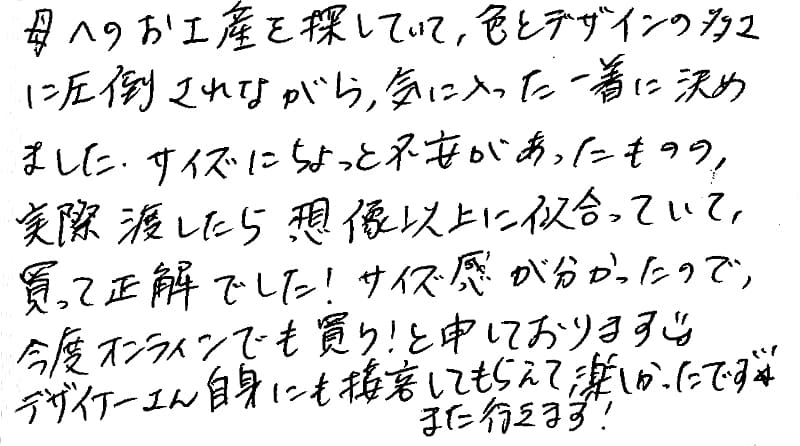 母へのお土産を探していて、色とデザインの多さ
に圧倒されながら、気に入った一着に決め
ました。サイズにちょっと不安があったものの、
実際渡したら想像以上に似合っていて、
買って正解でした!サイズ感が分かったので、
今度オンラインでも買う!と申しております
デザイナーさん自身にも接客してもらえて楽しかったです
また行きます!